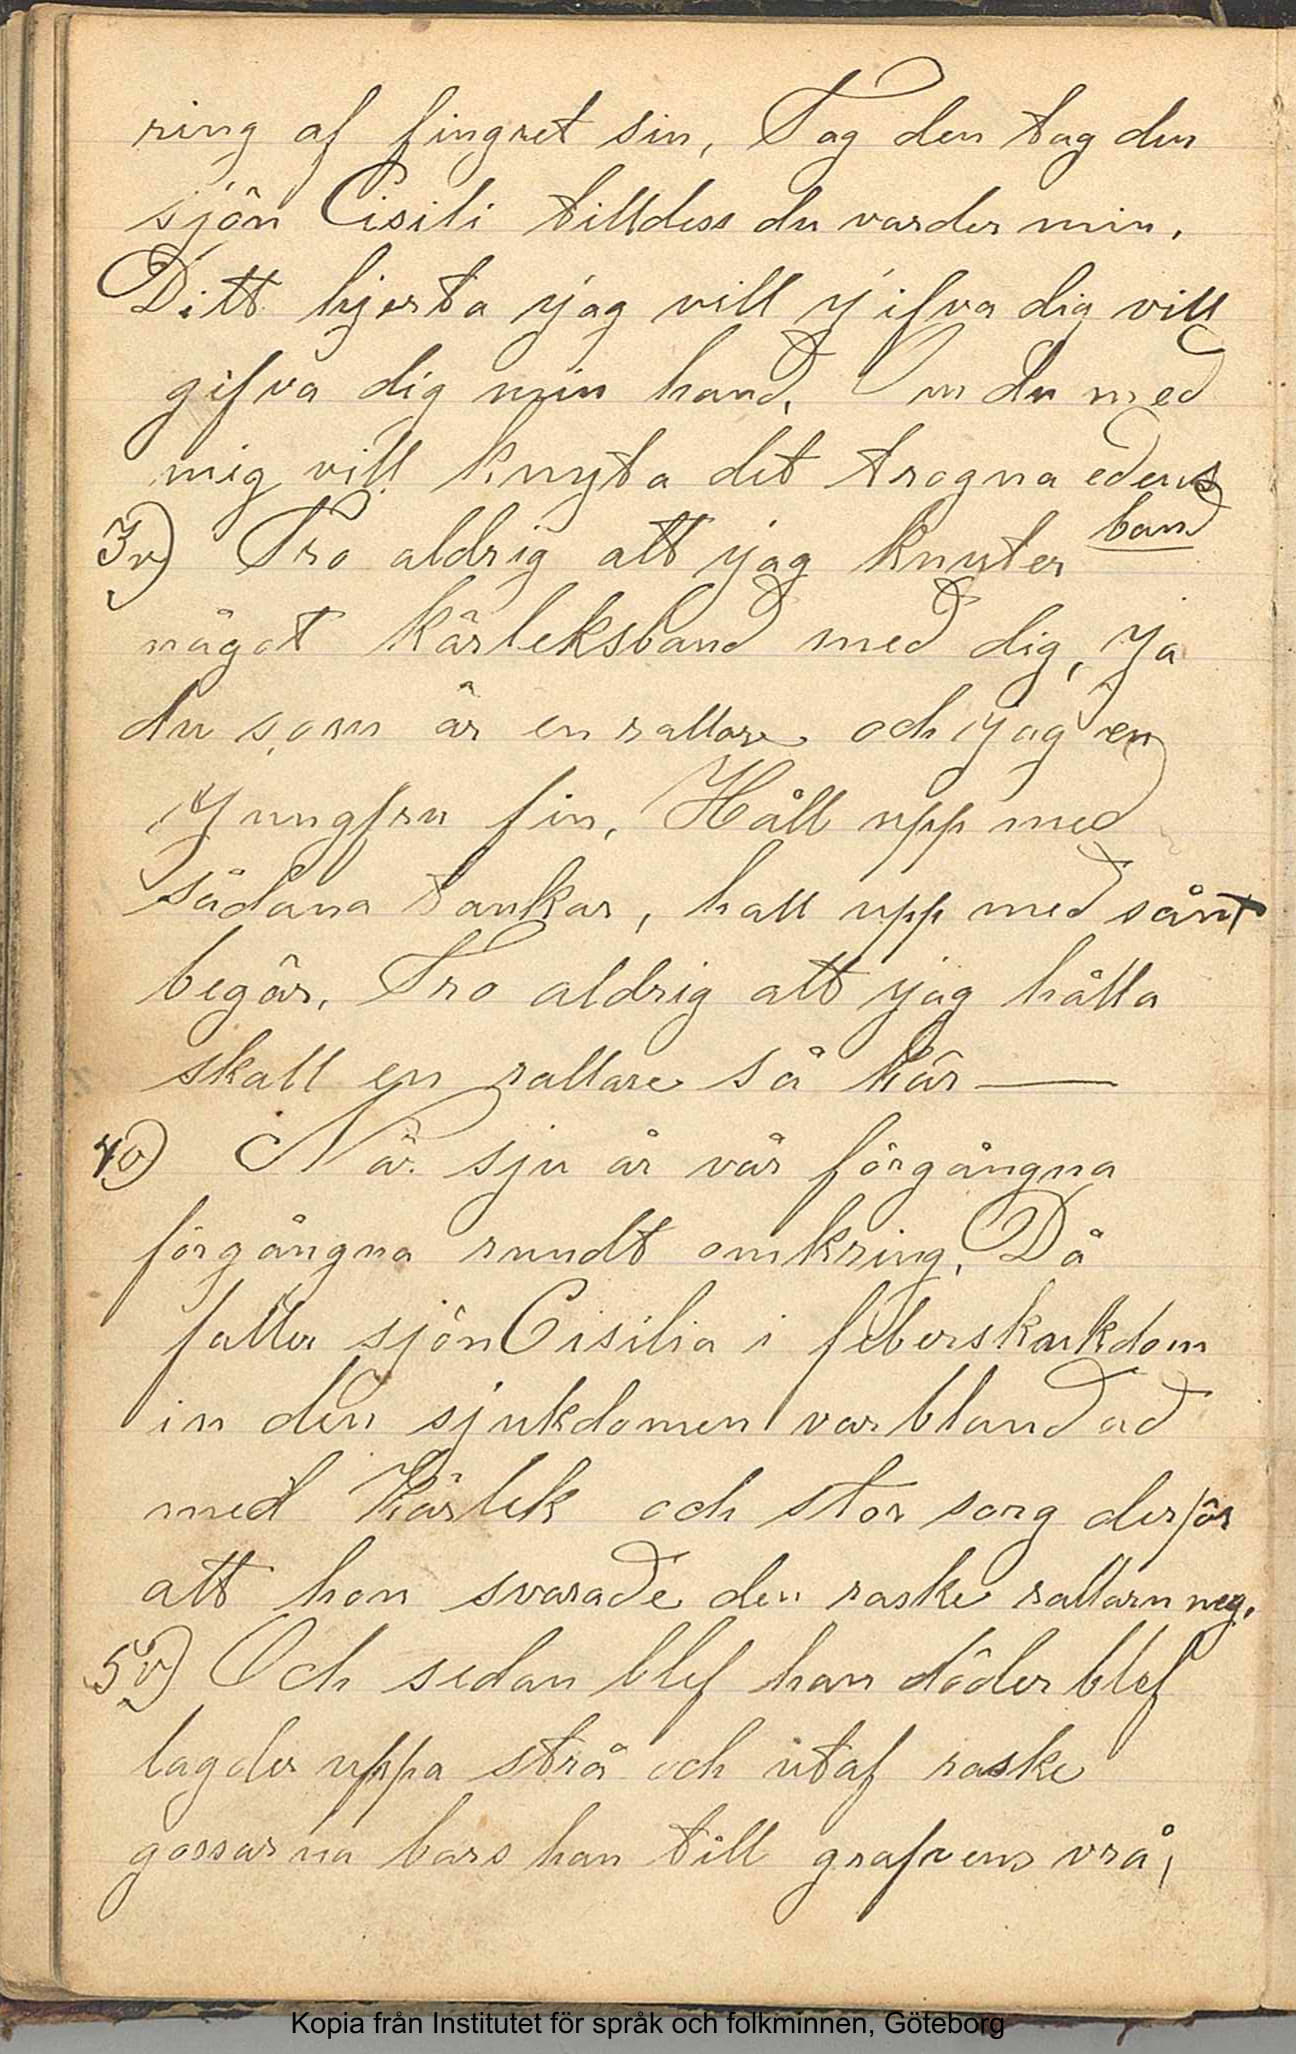 ring af fingret sin, Tag den tag den
sjön Cisili tilldess du varder min.
Ditt hjerta jag vill jifva dig vill
gifva dig min hand, Om du med
mig vill knyta det trogna edens
band
3v) Tro aldrig att jag knyter
något kärleksband med dig, Ja
du som är en rallare och jag en
Jungfru fin, Håll upp med
sådana tankar, hall upp med sånt
begär, Tro aldrig att jag hålla
skall en rallare så kär —
4v) När sju år vår förgångna
förgångna rundt omkring, Då
faller sjön Cisilia i feberskukdom
in den sjukdomen var blandad
med kärlek och stor sorg derför
att hon svarade den raske rallarn nej.
5v) Och sedan blef han döder blef
lagder uppa strå och utaf raske
gossarna bars han till grafvens vrå,
Kopia från Institutet för språk och folkminnen, Göteborg